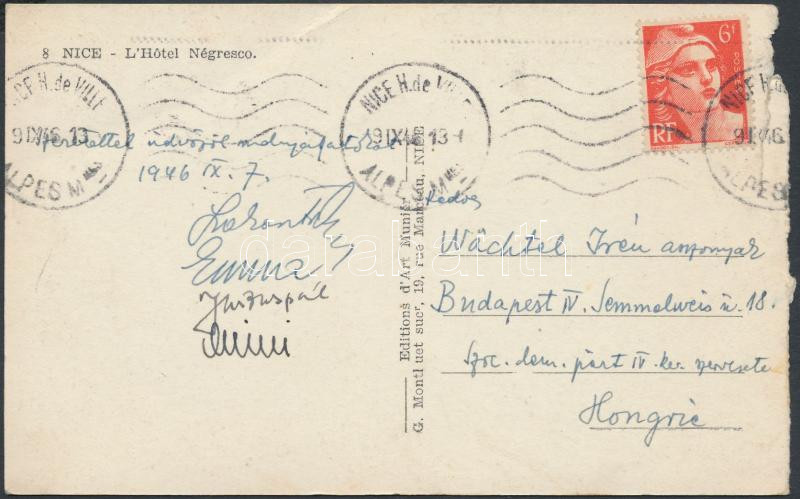 8 NICE - L'Hôtel Négresco.
NICE H. de VILLE
9 IX 46 13
ALPES Mmes
NICE H. de VILLE
19 IX 46 13 H
ALPES Mmes
6F
POSTES
RF
NICE H. de
9 IX 46
ALPES
Szeretettel üdvözöl
1946 IX. 7.
Emma
Mimi
Editions d'Art Munier
G. Montluet sucr, 19, rue Marceau, NICE
Kedves
Wächtel Irén asszonynak
Budapest IV. Semmelweis u. 18.
Szoc. dem. párt IV. ker. szervezete
Hongrie
darabanth